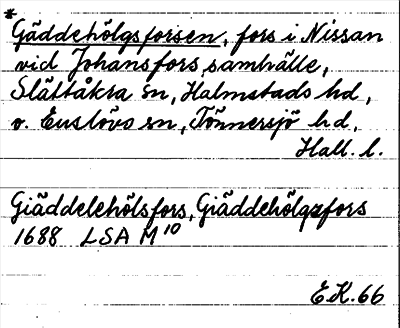 * Gäddehölgsforsen, fors i Nissan
vid Johansfors samhälle,
Slättåkra sn, Halmstads hd,
o. Enslövs sn, Tönnersjö hd,
Hall. l.
Giäddelehölsfors, Giäddehölgzfors
1688 LSA M 10
E.K. 66